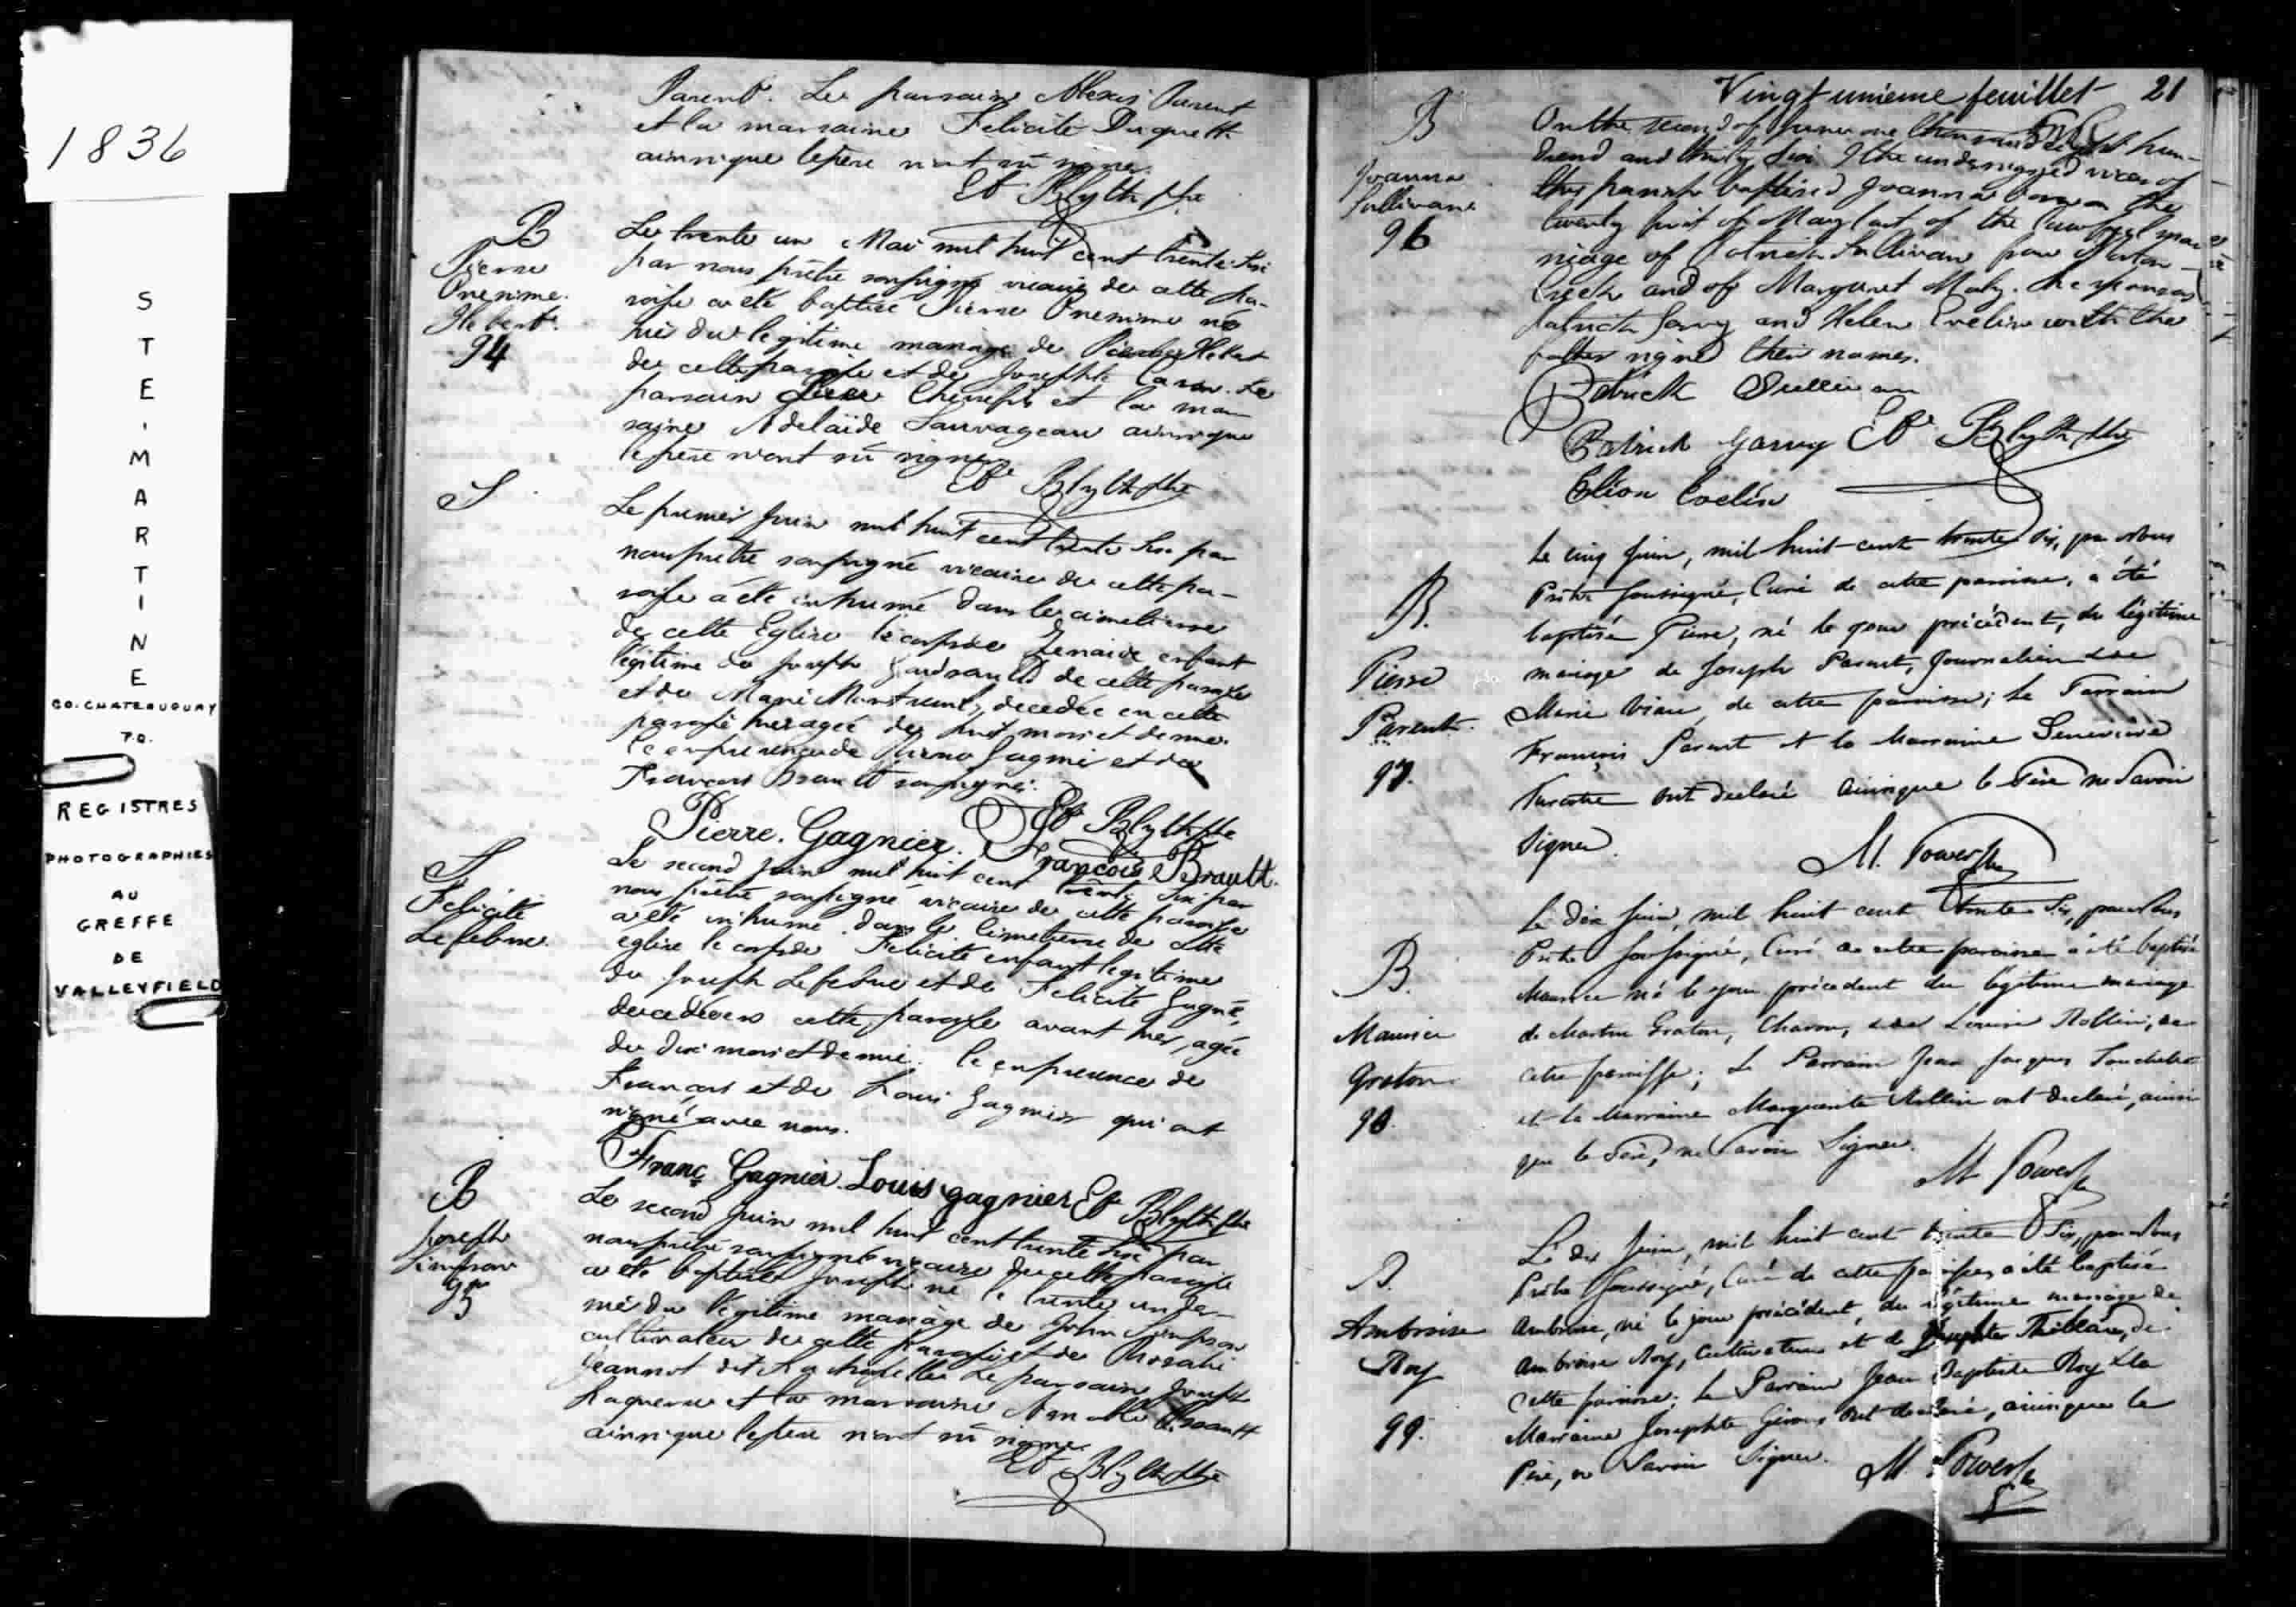 1836
STE. MARTINE
CO. CHATEAUGUAY
P.Q.
REGISTRES
PHOTOGRAPHIES
AU
GREFFE
DE
VALLEYFIELD
Parent. Le parrain Alexis Parent
et la marraine Felicité Duquette
ainsi que le père n'ont sû signer.
Et. Blyth Ptre
B
Pierre
Onesime
Hebert.
94
Le trente un Mai mil huit cent trente six
par nous prêtre soussigné vicaire de cette pa-
roisse a été baptisé Pierre Onesime né
du legitime mariage de Hebert
de cette paroisse et de Josephte Caron. Le
parrain et la mar
raine Adelaïde Sauvageau ainsi que
le père n'ont sû signer
Et. Blyth Ptre
S
Le premier Juin mil huit cent trente six par
nous prêtre soussigné vicaire de cette pa-
roisse a été inhumé dans le cimetiere
de cette Eglise le corps de Zenaide enfant
légitime de Joseph de cette paroisse
et de Marie Montreuil, decedée en cette
paroisse hier agée de huit mois et demie.
le en presence de Pierre Gagnié et de
François Brault soussignés.
Et. Blyth Ptre
Pierre. Gagnier. François Brault.
S
Felicité
Lefebvre.
Le second Juin mil huit cent trente six par
nous prêtre soussigné vicaire de cette paroisse
a été inhumé dans le cimetiere de cette
eglise le corps de Felicité enfant legitime
de Joseph Lefebvre et de Felicité Gagné,
decedée en cette paroisse avant hier, agée
de dix mois et demie. le en presence de
François et de Louis Gagnier qui ont
signé avec nous.
Franç Gagnier. Louis gagnier Et. Blyth Ptre
B
Joseph
Simpson
95
Le second Juin mil huit cent trente six par
nous prêtre soussigné vicaire de cette paroisse
a été baptisé Joseph né le trente un de
mai du légitime mariage de John Simpson
cultivateur de cette paroisse et de Rosalie
Jeannot dit Lachapelle. Le parrain Joseph
et la marraine Amable Brault
ainsi que le père n'ont sû signer
Et. Blyth Ptre
Vingt unieme feuillet 21
B
Joanna
Sullivan
96
On the second of June one thousand eight hun-
dred and thirty six I the undersigned vicar of
this parish baptised Joanna born on the
twenty first of May last of the lawful mar
riage of Patrick Sullivan from Norton
Creek and of Margaret Maly. The sponsors
Patrick Garvy and Helen Evelin with the
father signed their names.
Patrick Sullivan
Patrick Garvey Et. Blyth Ptre
Elion Evelin
B.
Pierre
Parent.
97.
Le cinq Juin, mil huit-cent trente Six, par Nous
Prêtre Soussigné, Curé de cette paroisse, a été
baptisé Pierre, né le jour précédent, du légitime
mariage de Joseph Parent, Journalier & de
Marie Viau, de cette paroisse; Le Parrain
François Parent et la Marraine Genevieve
Turcotte ont declaré ainsi que le Père ne Savoir
Signer.
M. Power Ptre
B.
Maurice
Graton
98.
Le dix Juin, mil huit cent trente Six, par Nous
Prêtre Soussigné, Curé de cette paroisse a été baptisé
Maurice né le jour précedent du légitime mariage
de Martin Graton, Charon, & de Louise Rollin, de
cette paroisse; Le Parrain Jean Jacques Touchette
et la Marraine Marguerite Rollin ont declaré, ainsi
que le Père, ne Savoir Signer.
M. Power Ptre
B.
Ambroise
Roy
99.
Le dix Juin, mil huit cent trente Six, par Nous
Prêtre Soussigné, Curé de cette paroisse, a été baptisé
Ambroise, né le jour précédent, du légitime mariage de
Ambroise Roy, Cultivateur et de Josephte, de
Cette paroisse; Le Parrain Jean Baptiste Roy & la
Marraine Josephte ont declaré, ainsi que le
Père, ne Savoir Signer.
M. Power Ptre